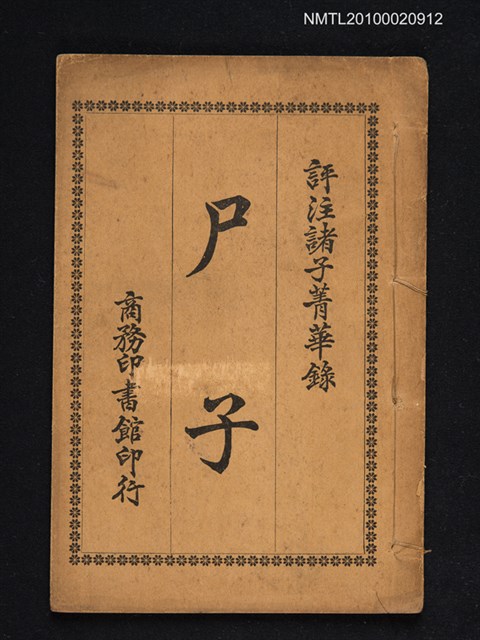 NMTL20100020912
評注諸子菁華錄
尸子
商務印書館印行